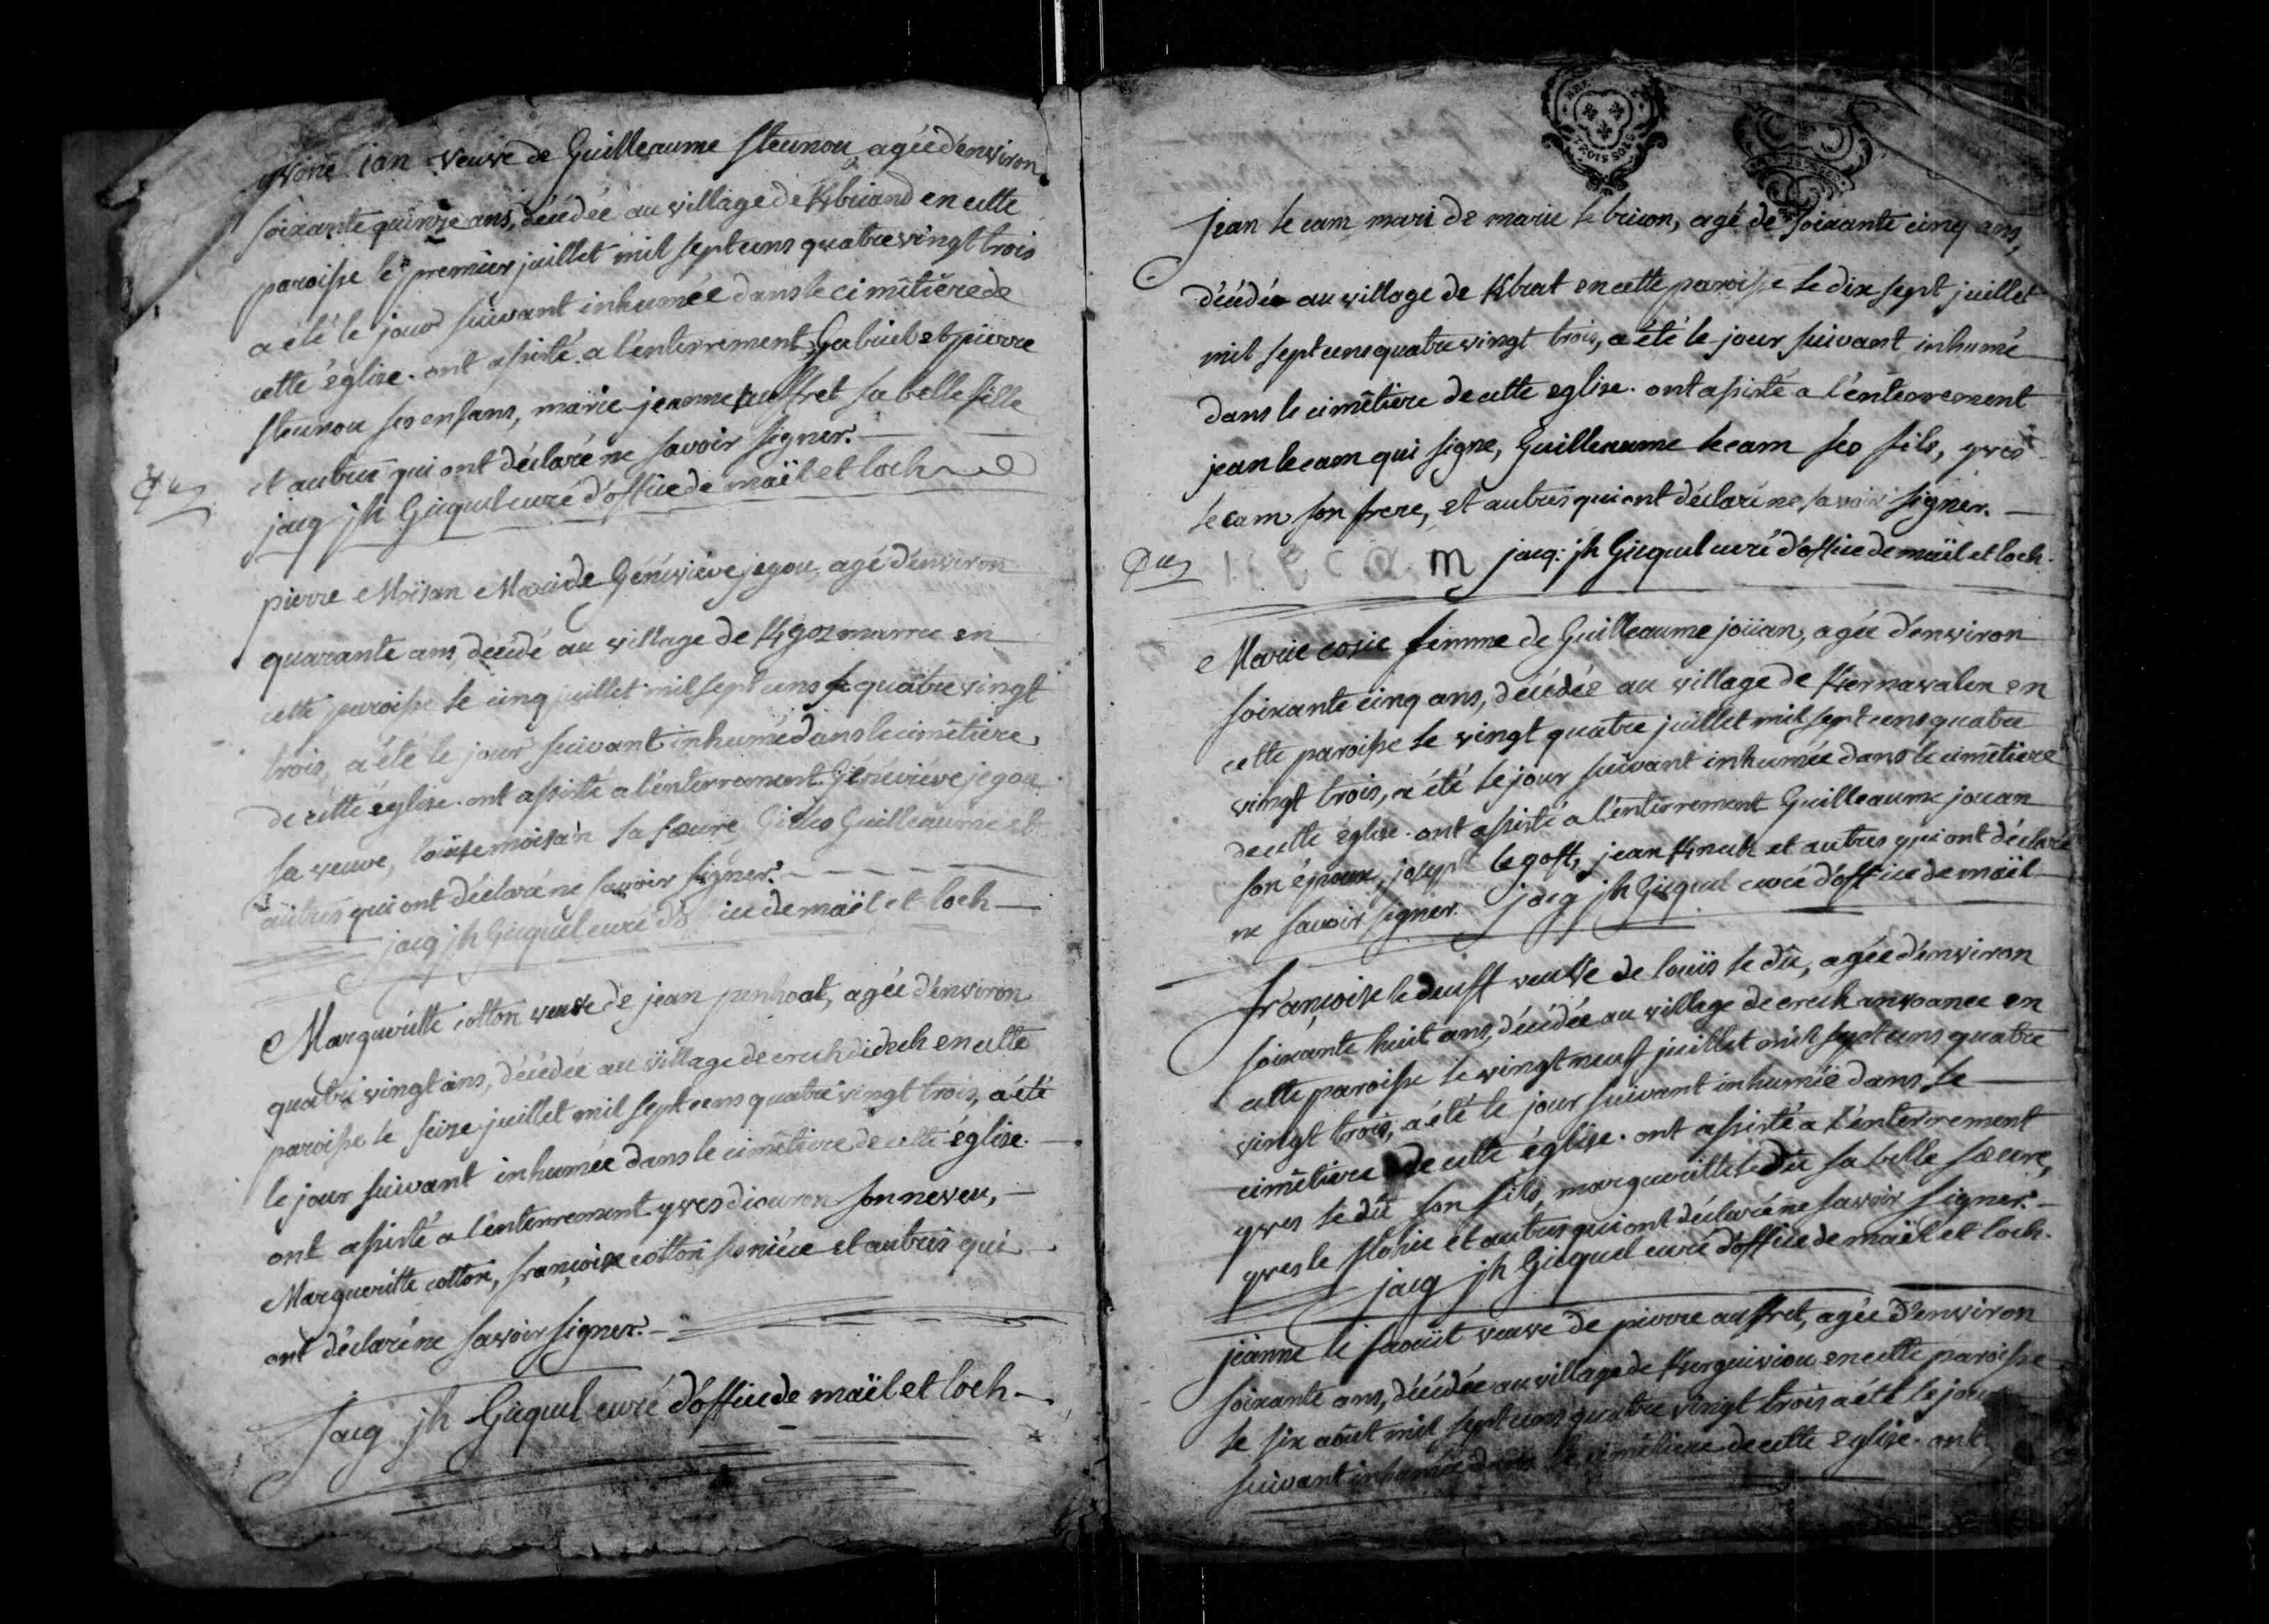 yvone jan veuve de Guilleaume steunou agée d'environ
soixante quinze ans, décédée au village de K/briand en cette
paroisse le premier juillet mil sept cens quatre vingt trois
a été le jour suivant inhumée dans le cimetière de
cette église. ont assisté a l'enterrement Gabriel et pierre
steunou ses enfans, marie jeanne auffret sa belle fille
et autres qui ont déclaré ne savoir signer.
jacq jh Gicquel curé d'office de maël et loch
pierre Moisan Mari de Généviève jegou, agé d'environ
quarante ans décédé au village de K/gozmarrec en
cette paroisse le cinq juillet mil sept cens quatre vingt
trois, a été le jour suivant inhumé dans le cimetière
de cette église. ont assisté a l'enterrement Généviève jegou
sa veuve, louise moisan sa sœure, Gilles Guilleaume et
autres qui ont déclaré ne savoir signer.
jacq jh Gicquel curé ice de maël et loch
Margueritte cotton veuve de jean penhoat, agée d'environ
quatre vingt ans, décédée au village de crech didech en cette
paroisse le seize juillet mil sept cens quatre vingt trois, a été
le jour suivant inhumée dans le cimetière de cette église.
ont assisté a l'enterrement yves diouron son neveu,
Margueritte cotton, françoise cotton sa nièce et autres qui
ont déclaré ne savoir signer.
Jacq jh Gicquel curé d'office de maël et loch
jean le cam mari de marie le bricon, agé de soixante cinq ans,
décédé au village de K/brat en cette paroisse le dix sept juillet
mil sept cens quatre vingt trois, a été le jour suivant inhumé
dans le cimetière de cette eglise. ont assisté a l'enterrement
jean le cam qui signe, Guilleaume le cam ses fils, yves
le cam son frere, et autres qui ont déclaré ne savoir signer.
le cam jacq: jh Gicquel curé d'office de maël et loch.
Marie cozic femme de Guilleaume joüan, agée d'environ
soixante cinq ans, décédée au village de K/ernavalen en
cette paroisse le vingt quatre juillet mil sept cens quatre
vingt trois, a été le jour suivant inhumée dans le cimetière
de cette église. ont assisté a l'enterrement Guilleaume jouan
son époux, joseph le goff, jean K/neck et autres qui ont déclaré
ne savoir signer. jacq jh Gicquel curé d'office de maël
françoise le deuff veuve de louis le dû, agée d'environ
soixante huit ans, décédée au village de crech anvoanec en
cette paroisse le vingt neuf juillet mil sept cens quatre
vingt trois, a été le jour suivant inhumée dans le
cimetière de cette église. ont assisté a l'enterrement
yves le dû son fils, margueritte le dû sa belle sœure,
yves le flohic et autres qui ont déclaré ne savoir signer.
jacq jh Gicquel curé d'office de maël et loch.
jeanne le saoüt veuve de pierre auffret, agée d'environ
soixante ans, décédée au village de K/urguiviou en cette paroisse
le six août mil sept cens quatre vingt trois a été le jour
suivant inhumée dans le cimetière de cette eglise. ont